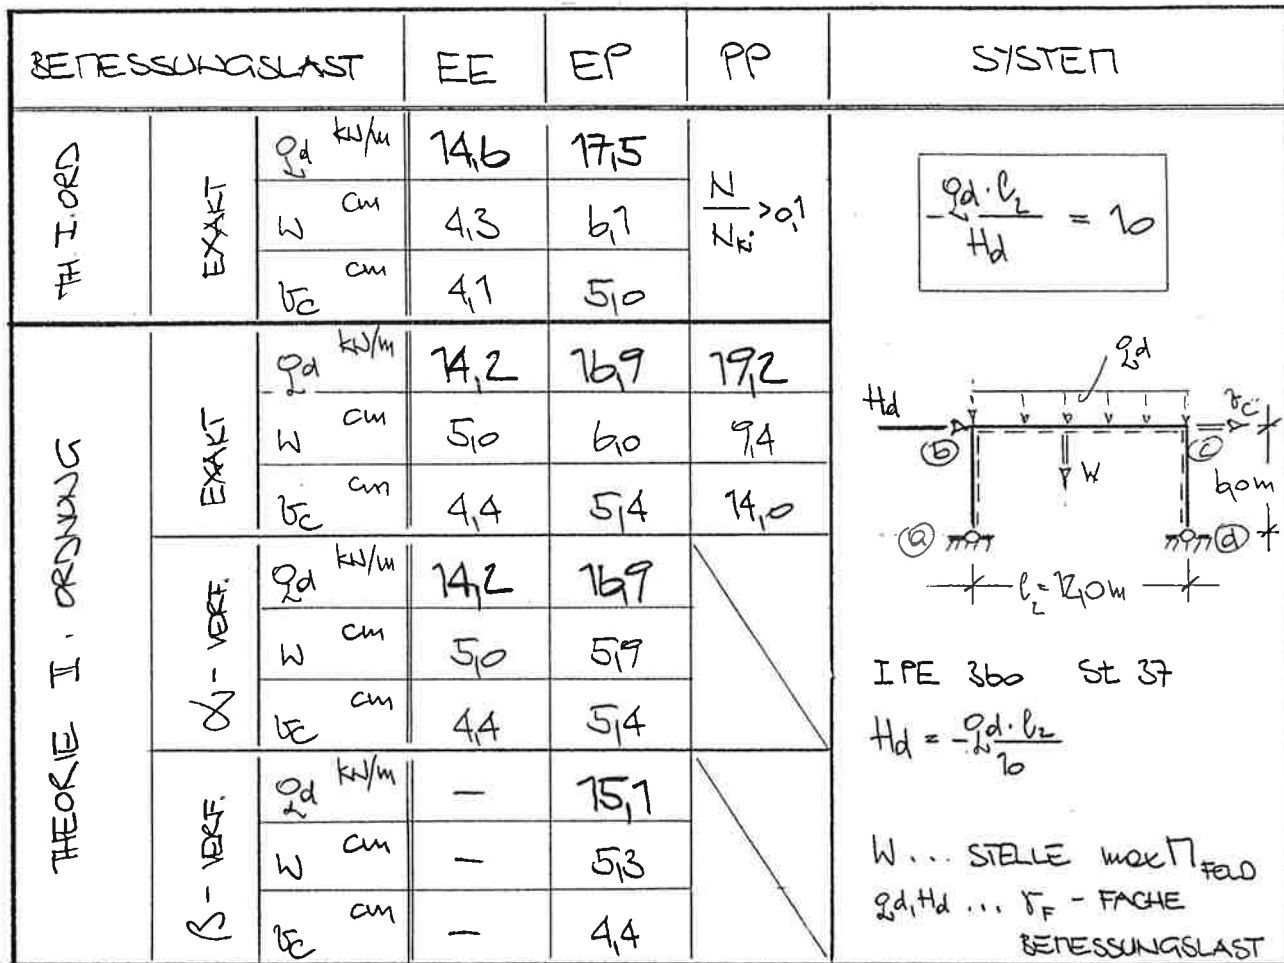 BEMESSUNGSLAST EE EP PP SYSTEM
TH. I. ORD
EXAKT
qd kN/m 14,6 17,5
w cm 4,3 6,1
vc cm 4,1 5,0
N / NKi > 0,1
THEORIE II. ORDNUNG
EXAKT
qd kN/m 14,2 16,9 19,2
w cm 5,0 6,0 9,4
vc cm 4,4 5,4 14,0
α - VERF.
qd kN/m 14,2 16,9
w cm 5,0 5,9
vc cm 4,4 5,4
β - VERF.
qd kN/m – 15,1
w cm – 5,3
vc cm – 4,4
qd · l2 / Hd = 10
qd
Hd
vc
b
c
w
6,0 m
a
d
l2 = 12,0 m
IPE 360 St 37
Hd = qd · l2 / 10
w ... STELLE max M FELD
qd, Hd ... γF - FACHE
BEMESSUNGSLAST